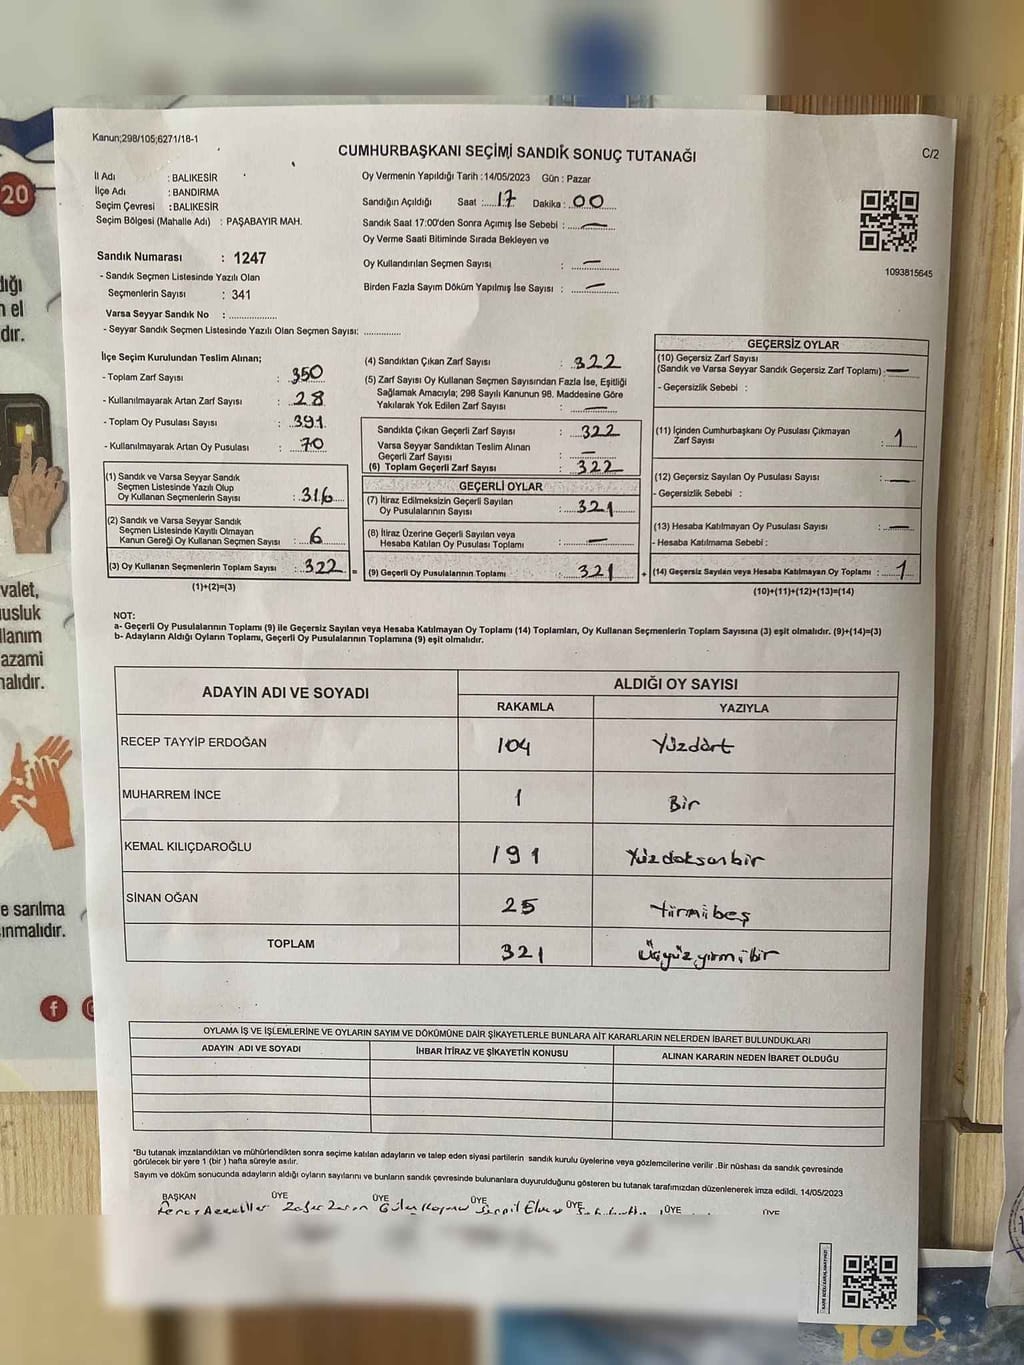 Kanun;298/105;6271/18-1
CUMHURBAŞKANI SEÇİMİ SANDIK SONUÇ TUTANAĞI
C/2
İl Adı : BALIKESİR
İlçe Adı : BANDIRMA
Seçim Çevresi : BALIKESİR
Seçim Bölgesi (Mahalle Adı) : PAŞABAYIR MAH.
Oy Vermenin Yapıldığı Tarih : 14/05/2023 Gün : Pazar
Sandığın Açıldığı Saat :.....17 Dakika : 00
Sandık Saat 17:00'den Sonra Açımış İse Sebebi : —
Oy Verme Saati Bitiminde Sırada Bekleyen ve
Oy Kullandırılan Seçmen Sayısı : —
Birden Fazla Sayım Döküm Yapılmış İse Sayısı : —
1093815645
Sandık Numarası : 1247
- Sandık Seçmen Listesinde Yazılı Olan
Seçmenlerin Sayısı : 341
Varsa Seyyar Sandık No : ..................
- Seyyar Sandık Seçmen Listesinde Yazılı Olan Seçmen Sayısı: ..............
İlçe Seçim Kurulundan Teslim Alınan;
- Toplam Zarf Sayısı : 350
- Kullanılmayarak Artan Zarf Sayısı : 28
- Toplam Oy Pusulası Sayısı : 391
- Kullanılmayarak Artan Oy Pusulası : 70
(1) Sandık ve Varsa Seyyar Sandık
Seçmen Listesinde Yazılı Olup
Oy Kullanan Seçmenlerin Sayısı : 316
(2) Sandık ve Varsa Seyyar Sandık
Seçmen Listesinde Kayıtlı Olmayan
Kanun Gereği Oy Kullanan Seçmen Sayısı : 6
(3) Oy Kullanan Seçmenlerin Toplam Sayısı : 322 =
(1)+(2)=(3)
(4) Sandıktan Çıkan Zarf Sayısı : 322
(5) Zarf Sayısı Oy Kullanan Seçmen Sayısından Fazla İse, Eşitliği
Sağlamak Amacıyla; 298 Sayılı Kanunun 98. Maddesine Göre
Yakılarak Yok Edilen Zarf Sayısı : —
Sandıkta Çıkan Geçerli Zarf Sayısı : 322
Varsa Seyyar Sandıktan Teslim Alınan
Geçerli Zarf Sayısı : —
(6) Toplam Geçerli Zarf Sayısı : 322
GEÇERLİ OYLAR
(7) İtiraz Edilmeksizin Geçerli Sayılan
Oy Pusulalarının Sayısı : 321
(8) İtiraz Üzerine Geçerli Sayılan veya
Hesaba Katılan Oy Pusulası Toplamı : —
(9) Geçerli Oy Pusulalarının Toplamı : 321 +
GEÇERSİZ OYLAR
(10) Geçersiz Zarf Sayısı
(Sandık ve Varsa Seyyar Sandık Geçersiz Zarf Toplamı) : —
- Geçersizlik Sebebi :
(11) İçinden Cumhurbaşkanı Oy Pusulası Çıkmayan
Zarf Sayısı : 1
(12) Geçersiz Sayılan Oy Pusulası Sayısı : —
- Geçersizlik Sebebi :
(13) Hesaba Katılmayan Oy Pusulası Sayısı : —
- Hesaba Katılmama Sebebi :
(14) Geçersiz Sayılan veya Hesaba Katılmayan Oy Toplamı : 1
(10)+(11)+(12)+(13)=(14)
NOT:
a- Geçerli Oy Pusulalarının Toplamı (9) ile Geçersiz Sayılan veya Hesaba Katılmayan Oy Toplamı (14) Toplamları, Oy Kullanan Seçmenlerin Toplam Sayısına (3) eşit olmalıdır. (9)+(14)=(3)
b- Adayların Aldığı Oyların Toplamı, Geçerli Oy Pusulalarının Toplamına (9) eşit olmalıdır.
ADAYIN ADI VE SOYADI ALDIĞI OY SAYISI
RAKAMLA YAZIYLA
RECEP TAYYİP ERDOĞAN 104 Yüzdört
MUHARREM İNCE 1 Bir
KEMAL KILIÇDAROĞLU 191 Yüzdoksanbir
SİNAN OĞAN 25 Yirmibeş
TOPLAM 321 Üçyüzyirmibir
OYLAMA İŞ VE İŞLEMLERİNE VE OYLARIN SAYIM VE DÖKÜMÜNE DAİR ŞİKAYETLERLE BUNLARA AİT KARARLARIN NELERDEN İBARET BULUNDUKLARI
ADAYIN ADI VE SOYADI İHBAR İTİRAZ VE ŞİKAYETİN KONUSU ALINAN KARARIN NEDEN İBARET OLDUĞU
*Bu tutanak imzalandıktan ve mühürlendikten sonra seçime katılan adayların ve talep eden siyasi partilerin sandık kurulu üyelerine veya gözlemcilerine verilir .Bir nüshası da sandık çevresinde
görülecek bir yere 1 (bir ) hafta süreyle asılır.
Sayım ve döküm sonucunda adayların aldığı oyların sayılarını ve bunların sandık çevresinde bulunanlara duyurulduğunu gösteren bu tutanak tarafımızdan düzenlenerek imza edildi. 14/05/2023
BAŞKAN ÜYE ÜYE ÜYE ÜYE ÜYE ÜYE
20
dığı
n el
dır.
valet,
usluk
llanım
azami
nalıdır.
e sarılma
ınmalıdır.
f
100